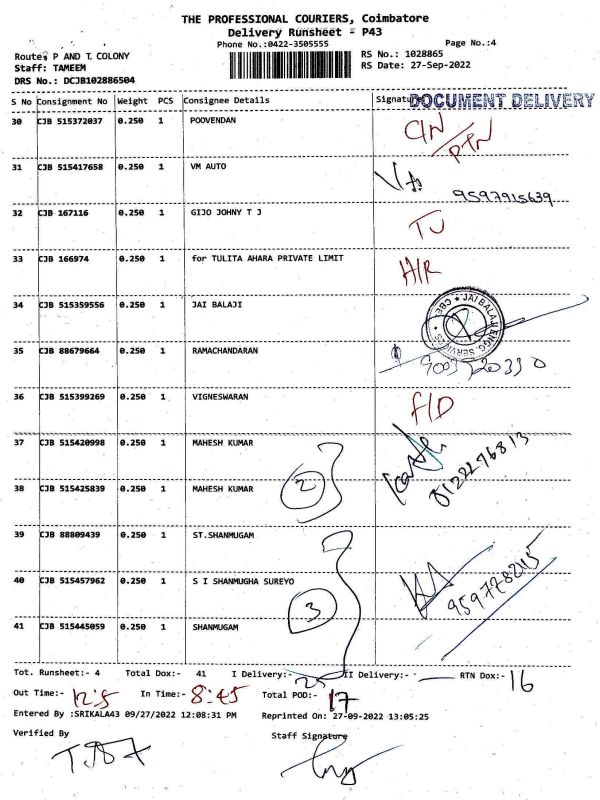 THE PROFESSIONAL COURIERS, Coimbatore
Delivery Runsheet - P43
Phone No.:0422-3505555
Page No.:4
Route: P AND T. COLONY
RS No.: 1028865
Staff: TAMEEM
RS Date: 27-Sep-2022
DRS No.: DCJB102886504
S No Consignment No Weight PCS Consignee Details Signature
DOCUMENT DELIVERY
30 CJB 515372037 0.250 1 POOVENDAN C/N / PTN
31 CJB 515417658 0.250 1 VM AUTO
9597915639
32 CJB 167116 0.250 1 GIJO JOHNY T J TU
33 CJB 166974 0.250 1 for TULITA AHARA PRIVATE LIMIT H/R
34 CJB 515359556 0.250 1 JAI BALAJI
JAI BALAJI ENGG SERVICES CBE
35 CJB 88679664 0.250 1 RAMACHANDRAN
36 CJB 515399269 0.250 1 VIGNESWARAN F/D
37 CJB 515420998 0.250 1 MAHESH KUMAR
8122276813
38 CJB 515425839 0.250 1 MAHESH KUMAR 2
39 CJB 88809439 0.250 1 ST.SHANMUGAM
40 CJB 515457962 0.250 1 S I SHANMUGHA SUREYO
3
41 CJB 515445059 0.250 1 SHANMUGAM
Tot. Runsheet:- 4 Total Dox:- 41 I Delivery:- 25 II Delivery:- — RTN Dox:- 16
Out Time:- 12:5 In Time:- 8:45 Total POD:- 17
Entered By :SRIKALA43 09/27/2022 12:08:31 PM Reprinted On: 27-09-2022 13:05:25
Verified By
Staff Signature